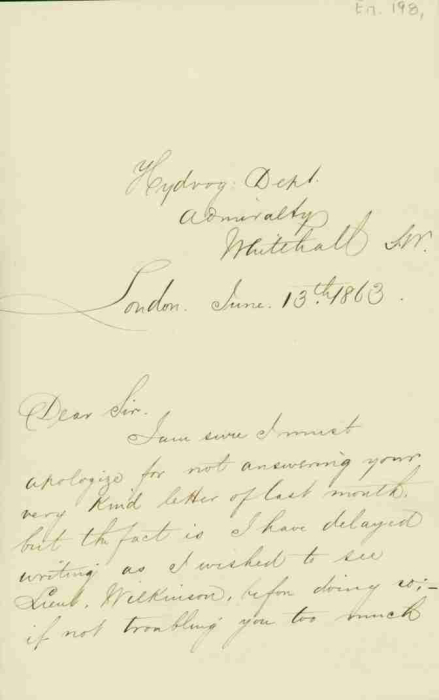 En. 198,
Hydrog: Dept.
Admiralty
Whitehall SW.
London. June. 13th. 1863.
Dear Sir.
I am sure I must
apologize for not answering your
very kind letter of last month.
but the fact is I have delayed
writing as I wished to see
Lieut. Wilkinson, before doing so;-
if not troubling you too much